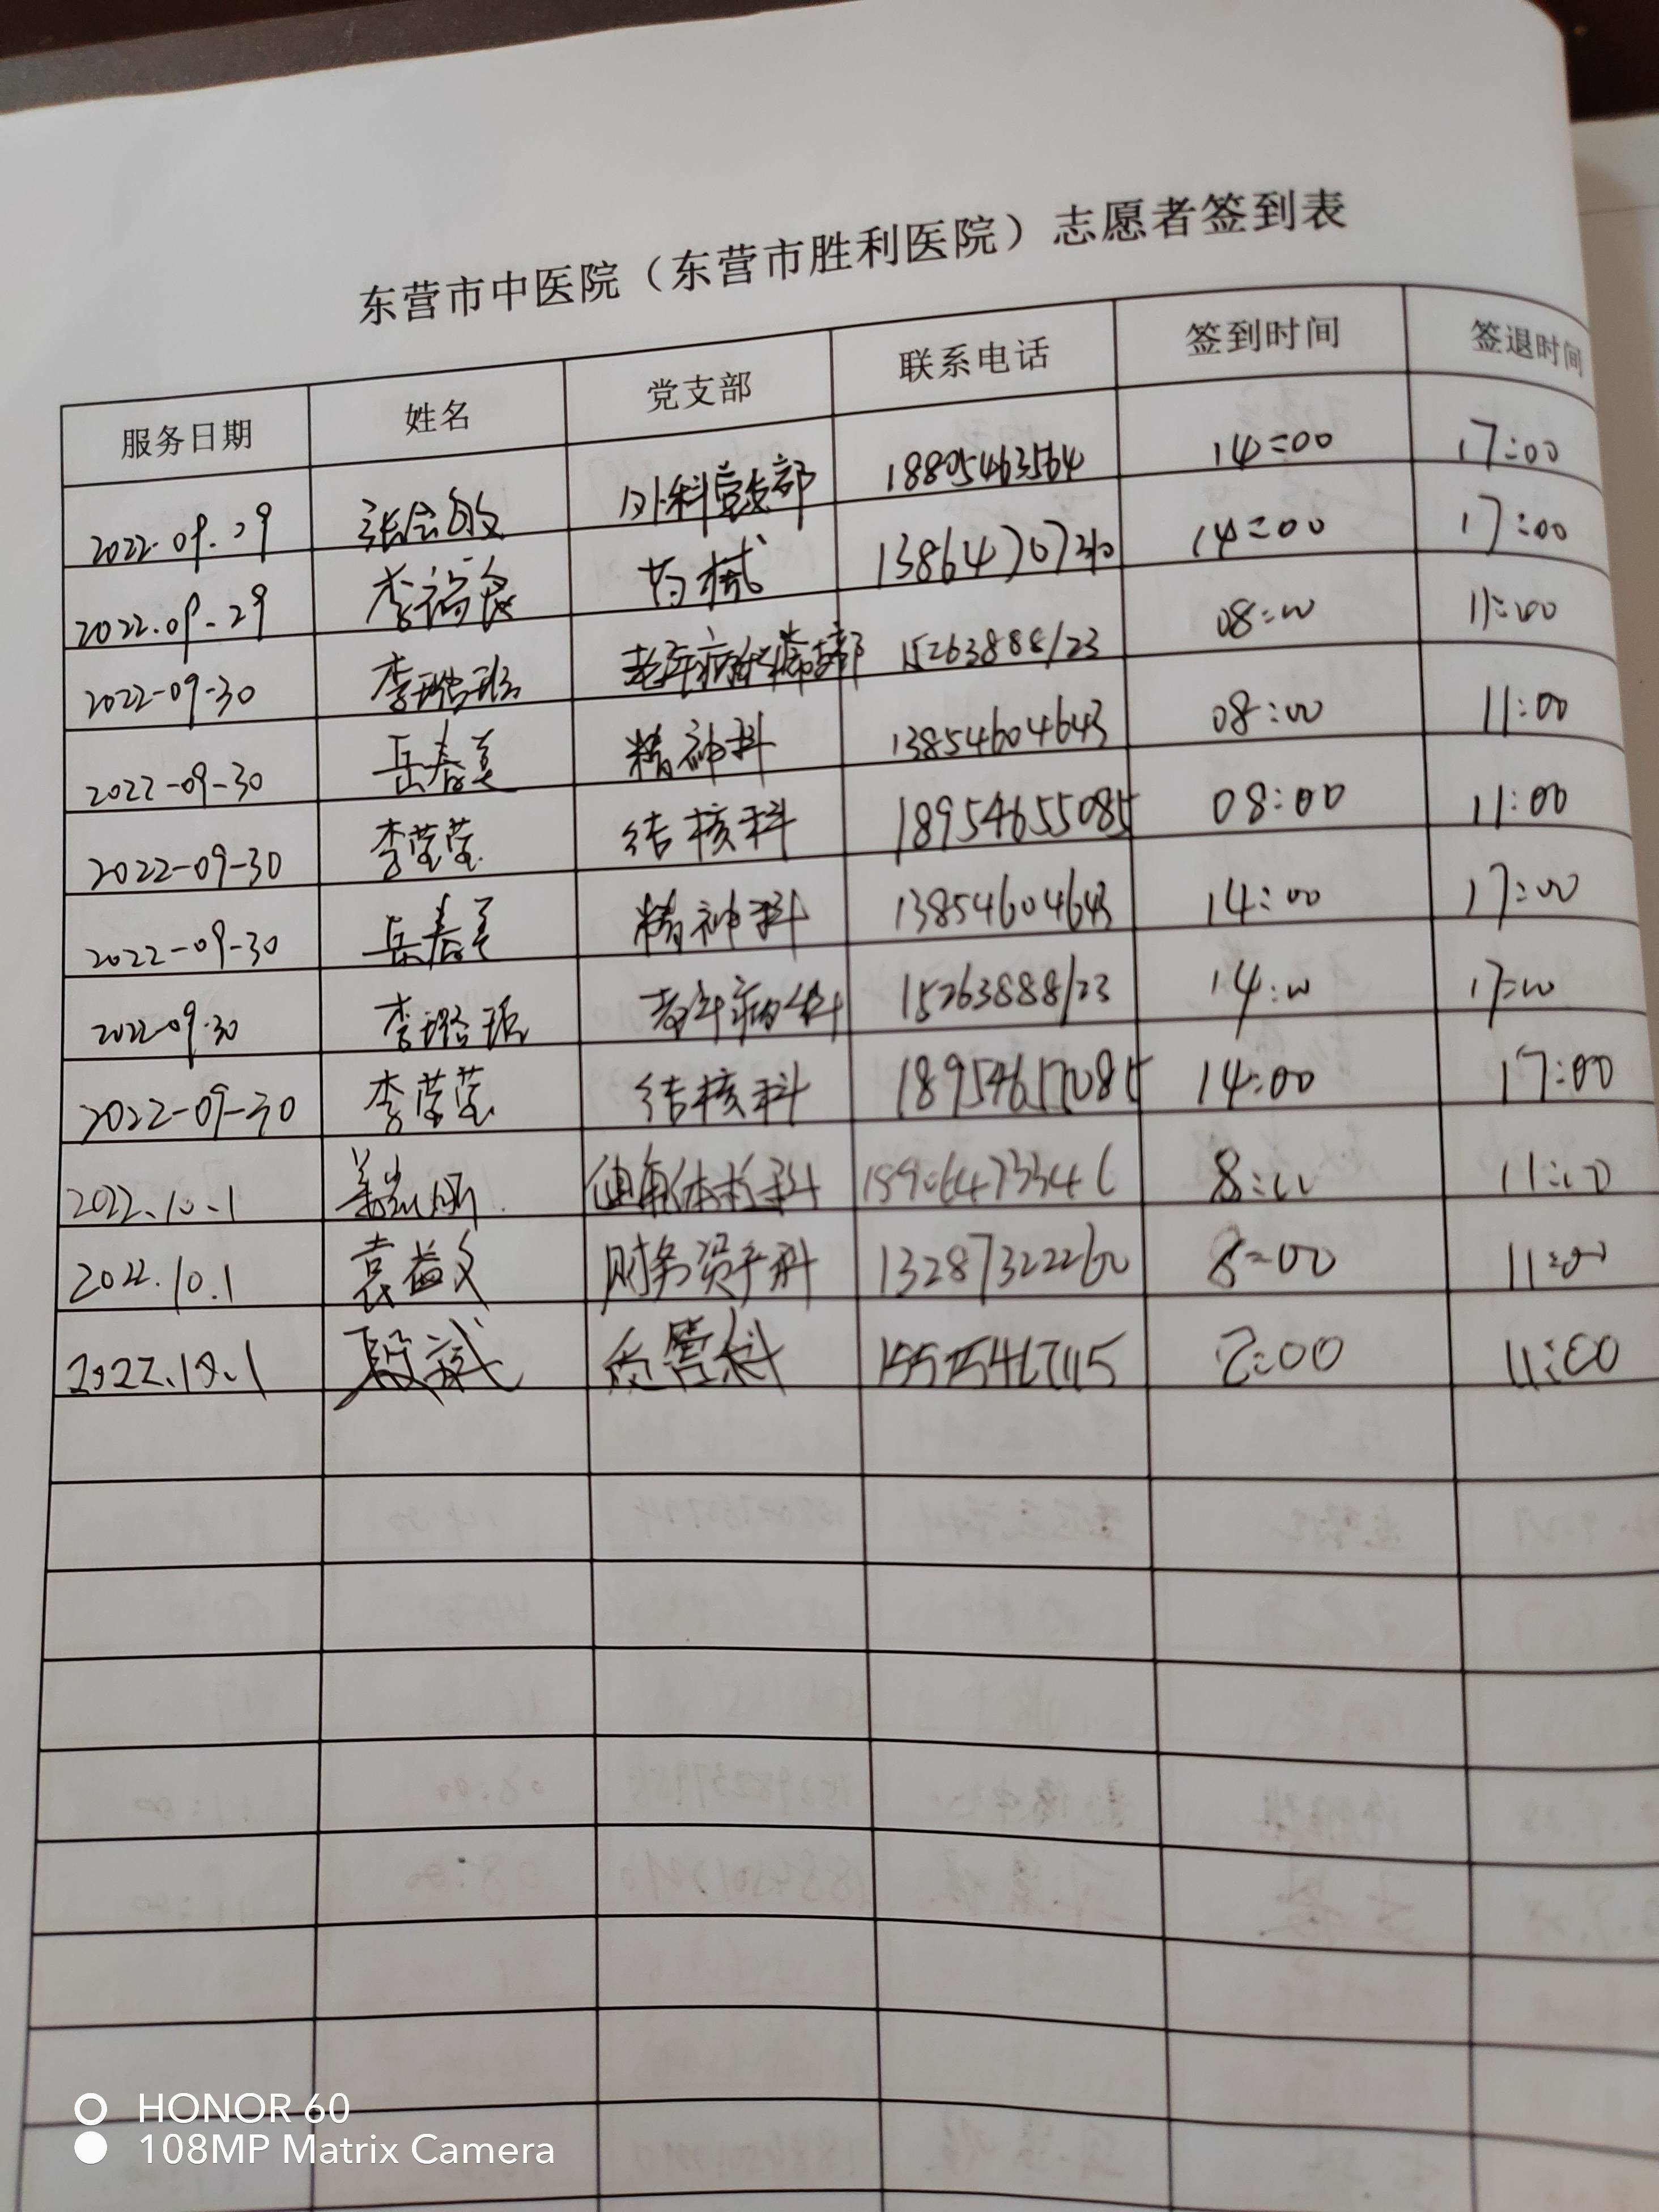 东营市中医院（东营市胜利医院）志愿者签到表
服务日期 姓名 党支部 联系电话 签到时间 签退时间
2022.09.29 张会敏 外科党支部 18805463564 14:00 17:00
2022.09.29 李福良 药械 14:00 17:00
2022-09-30 李璐班 老年病科党支部 15263888123 08:00 11:00
2022-09-30 岳春美 精神科 13854604643 08:00 11:00
2022-09-30 李莹莹 结核科 18954655085 08:00 11:00
2022-09-30 岳春美 精神科 13854604643 14:00 17:00
2022.09.30 老年病科 15263888123 14:00 17:00
2022-09-30 李莹莹 结核科 18954655085 14:00 17:00
2022.10.1 健康体检科 15906473346 8:00 11:00
2022.10.1 袁益文 财务资产科 13287322260 8:00 11:00
2022.10.1 段斌 质管科 8:00 11:00
HONOR 60
108MP Matrix Camera